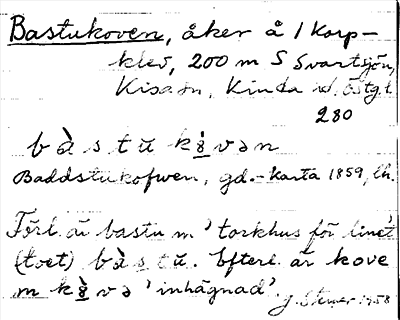 Bastukoven, åker å 1 Korp-
klev, 200 m S Svartsjön,
Kisa sn, Kinda hd. Östg.l.
280
b à s t ŭ k ò̤ v ə n
Baddstukofwen, gd.-karta 1859, lh.
Förl. är bastu m 'torkhus för linet'
(tvet) b à s t ŭ. Efterl. är kove
m k ò̤ v ə 'inhägnad'.
J. Stemer 1958